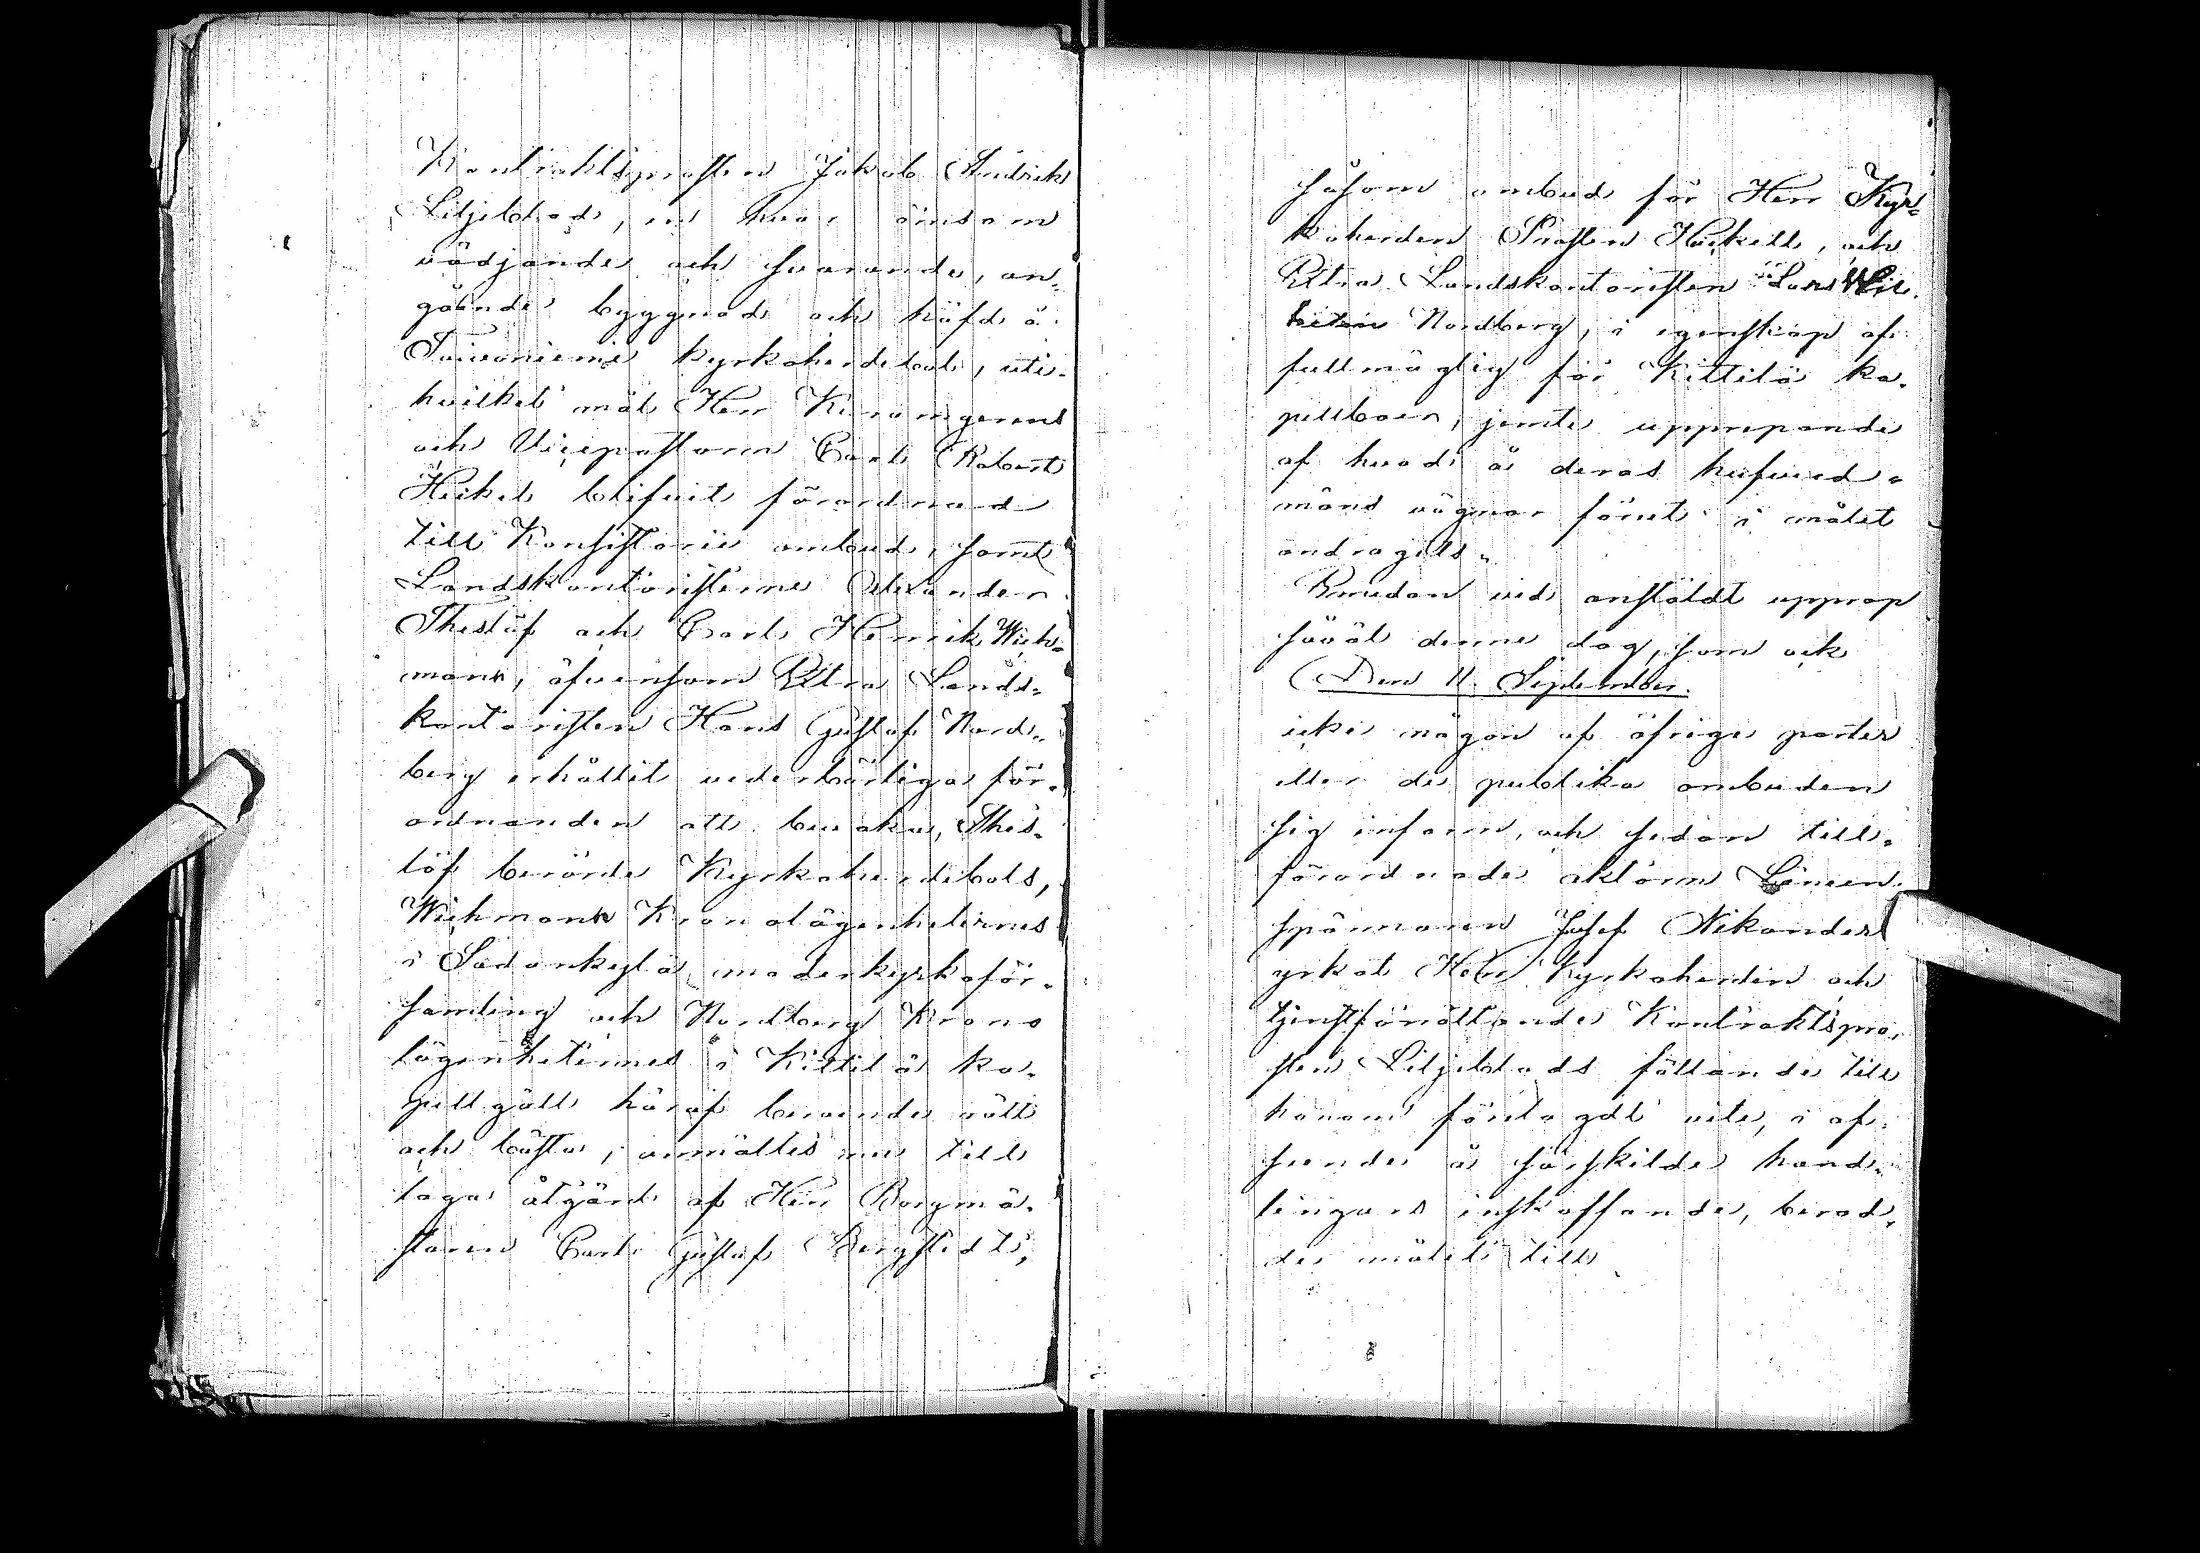 Kontraktsprosten Jakob Hendrik
Liljeblad, en hvar ömsom
vädjande och svarande, an-
gående byggnad och häfd å
Toivoniemi kyrkoherdebol, uti
hvilket mål Herr Kyrkomgerens
och Vicepastorn Carl Robert
Heikel blifvit förordnad
till Konsistorii ombud, samt
Landskontoristerne Alexander
Theslöf och Carl Henrik Wich-
mann, äfvensom Extra Lands-
kontoristen Hans Gustaf Nord-
berg erhållit vederbörliga för-
ordnanden att bevaka, Thes-
löf berörde Kyrkoherdebols,
Wichmann Kronolägenheternes
i Sodankylä moderkyrkoför-
samling och Nordberg Krono
lägenheternes i Kittilä ka-
pellgäll häraf beroende rätt
och bästa, anmältes nu till
laga åtgärd af Herr Borgmä-
staren Carl Gustaf Bergstedt,
såsom ombud för Herr Kyr-
koherden Prosten Heikell, och
Extra Landskontoristen Lars Wil-
helm Nordberg, i egenskap af
fullmägtig för Kittilä ka-
pellboer, jemte upprepande
af hvad å deras hufvud-
mäns vägnar förut i målet
andragits.
Emedan vid anstäldt upprop
såväl denne dag, som ock
Den 11 September.
icke någon af öfrige parter
eller de publika ombuden
sig infann, och sedan till-
förordnade aktorn Länsm.
spännaren Josef Nikander
yrkat Herr Kyrkoherden och
tjenstförrättande Kontraktspro-
sten Liljeblads fällande till
honom förelagdt vite, i af-
seende å särskilde hand-
lingars inskaffande, berod-
de målet till